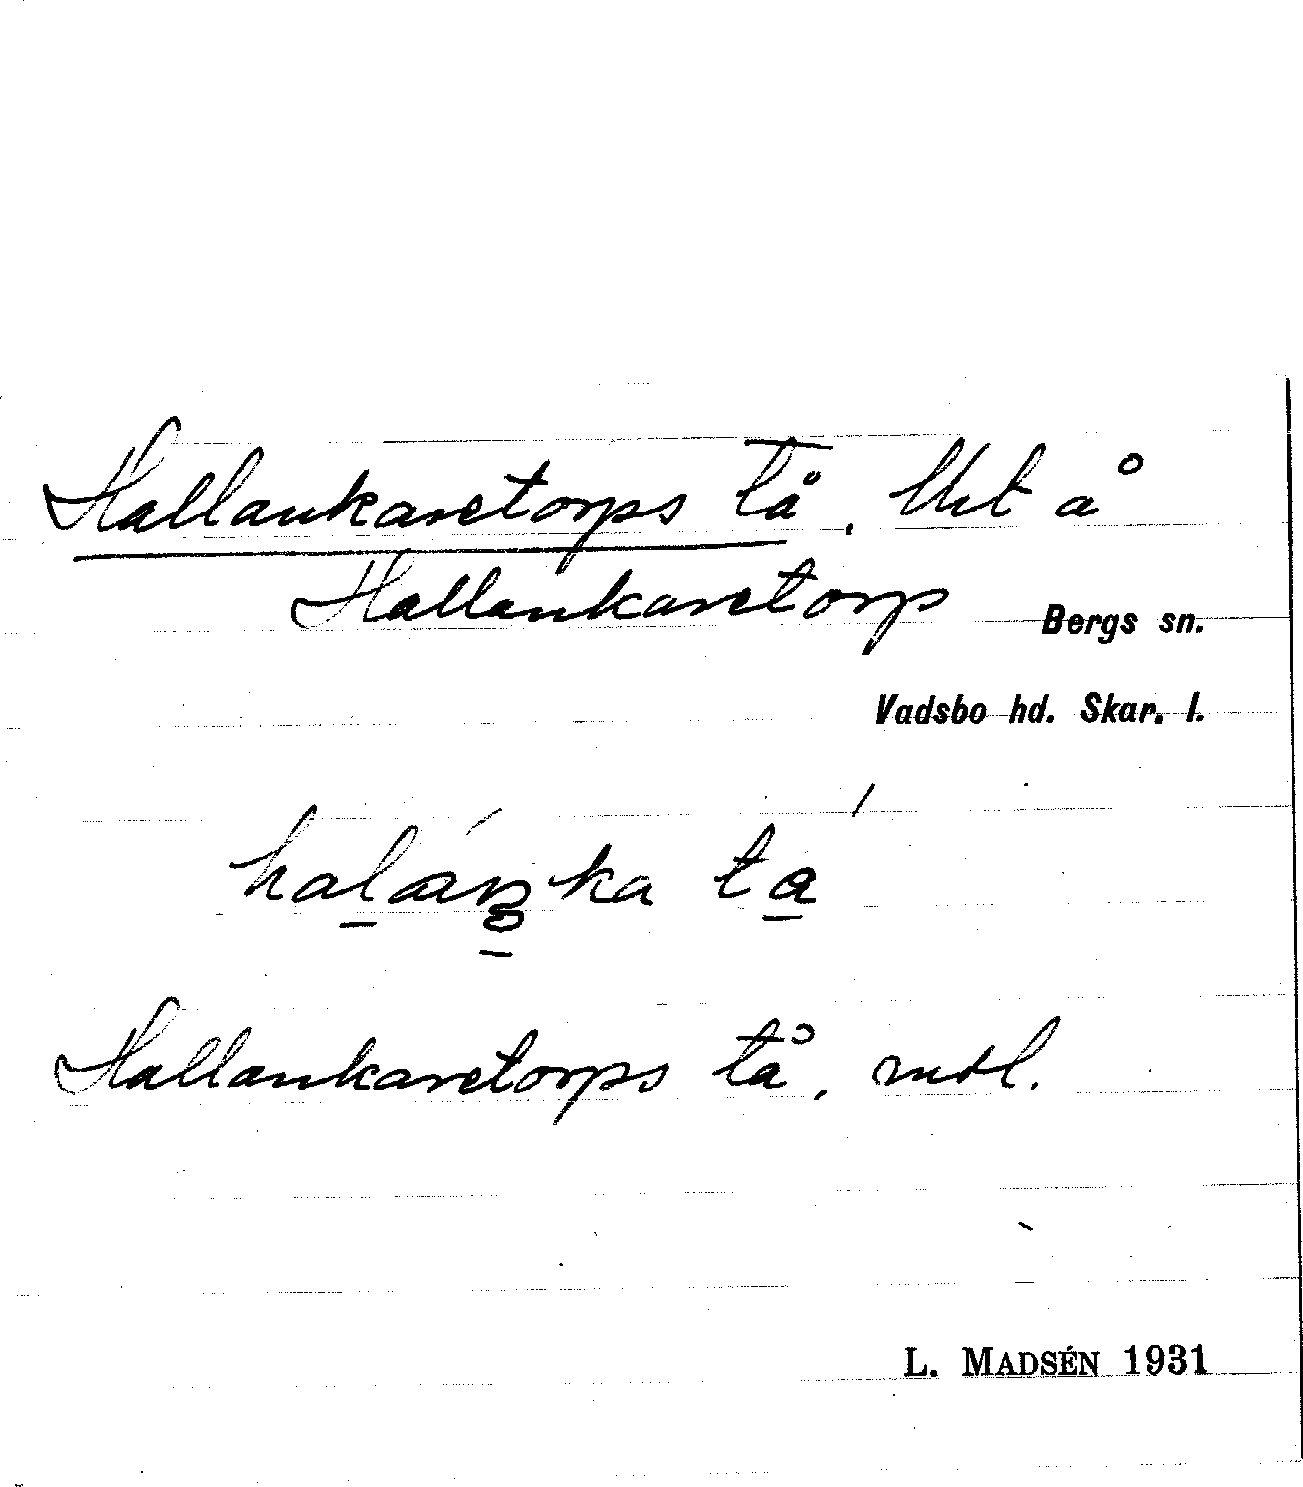 Hallankaretorps tå. Utl å
Hallankaretorp Bergs sn.
Vadsbo hd. Skar. l.
Hallankaretorps tå. mtl.
L. MADSÉN 1931